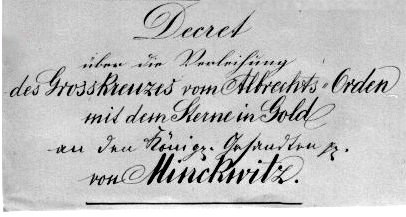 Decret
über die Verleihung
des Grosskreuzes vom Albrechts-Orden
mit dem Sterne in Gold
an den Königl. Gesandten p.
von Minckwitz.